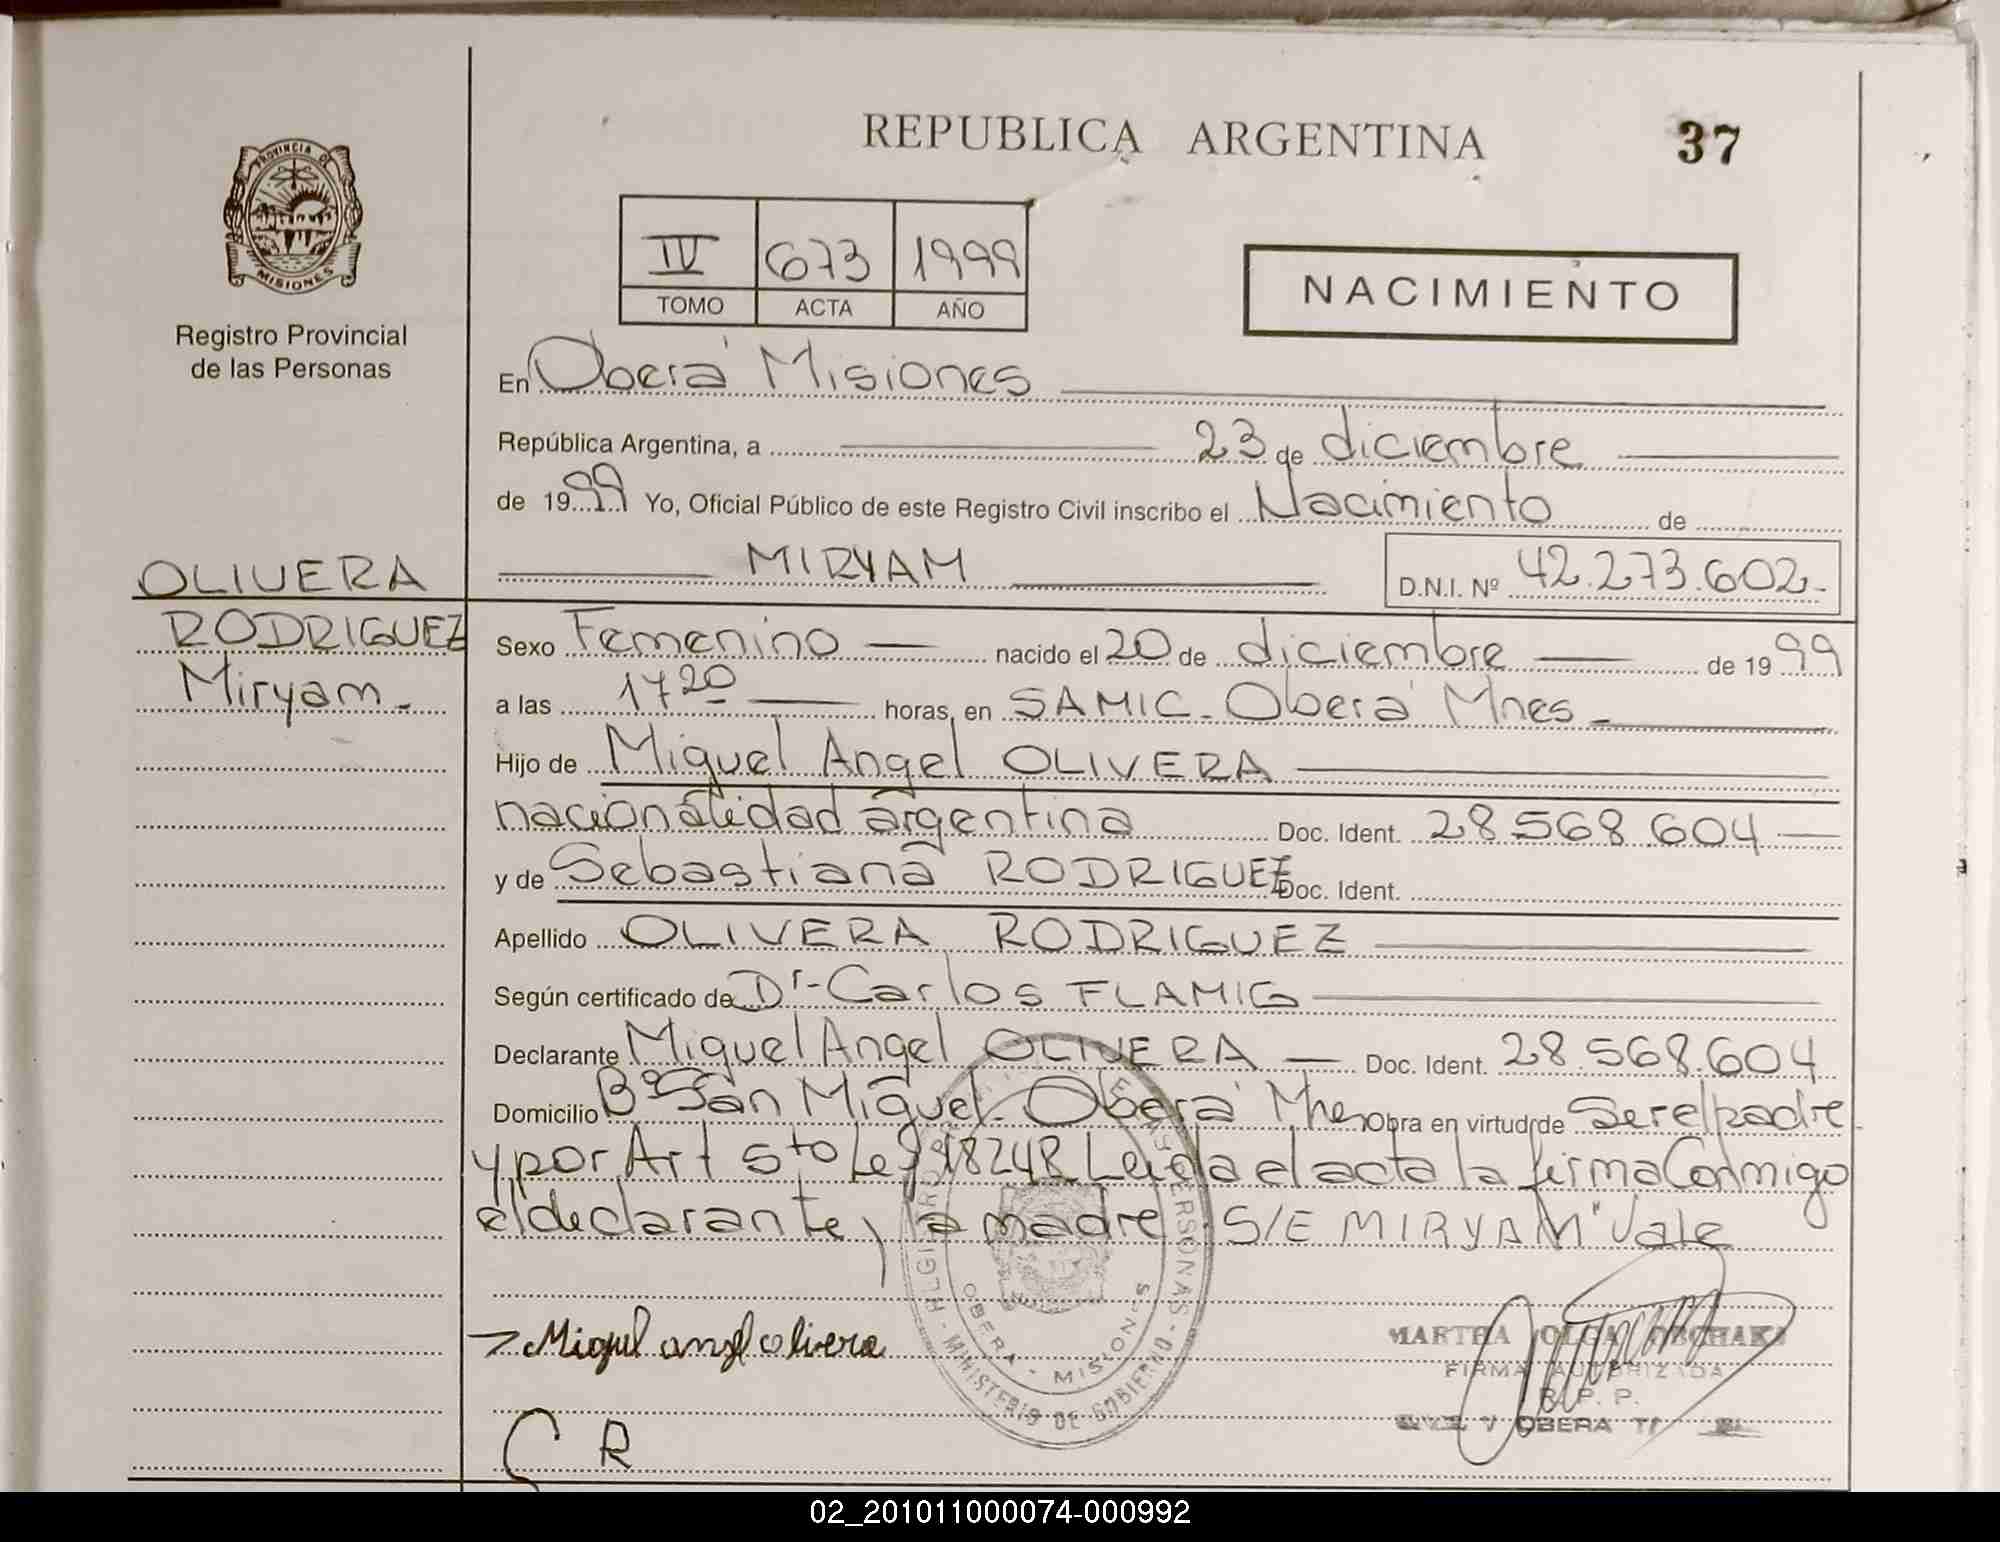 REPUBLICA ARGENTINA
37
PROVINCIA DE
MISIONES
Registro Provincial
de las Personas
IV 673 1999
TOMO ACTA AÑO
NACIMIENTO
En Oberá Misiones
República Argentina, a 23 de diciembre
de 1999 Yo, Oficial Público de este Registro Civil inscribo el Nacimiento de
MIRYAM D.N.I. Nº 42.273.602-
OLIVERA
RODRIGUEZ
Miryam-
Sexo Femenino nacido el 20 de diciembre de 1999
a las 17 20 horas, en SAMIC- Oberá Mnes-
Hijo de Miguel Angel OLIVERA
nacionalidad argentina Doc. Ident. 28.568.604
y de Sebastiana RODRIGUEZ Doc. Ident.
Apellido OLIVERA RODRIGUEZ
Según certificado de Dr- Carlos FLAMIG
Declarante Miguel Angel OLIVERA Doc. Ident. 28.568.604
Domicilio Bº San Miguel- Oberá Mnes Obra en virtud de ser el padre
y por Art 5to Ley 18248 Leida el acta la firma Conmigo
el declarante y la madre S/E MIRYAM" Vale
Miguel angel olivera
MARTHA OLGA
FIRMA AUTORIZADA
R. P. P.
OBERA
S R
OBERA - MISIONES
MINISTERIO DE GOBIERNO
02_201011000074-000992